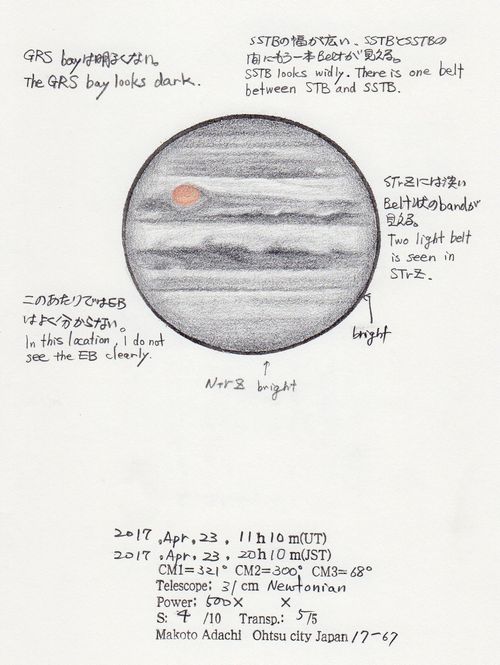 GRS bayは明るくない。
The GRS bay looks dark.
SSTBの幅が広い、SSTBとSSTBの
間にもう一本Beltが見える。
SSTB looks widly. There is one belt
between STB and SSTB.
STrZには淡い
Belt状のbandが
見える。
Two light belt
is seen in
STrZ.
このあたりではEB
はよく分からない。
In this location, I do not
see the EB clearly.
bright
NTrZ bright
2017 .Apr. 23 . 11h10m(UT)
2017 .Apr. 23 . 20h10m(JST)
CM1=321° CM2=300° CM3=68°
Telescope: 31 cm Newtonian
Power: 500× ×
S: 4 /10 Transp.: 5/5
Makoto Adachi Ohtsu city Japan 17-67